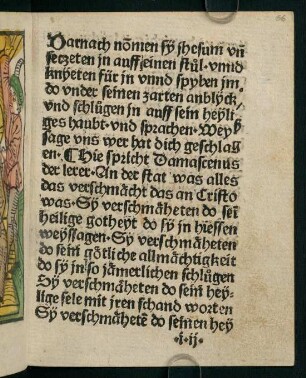 Darnach nōmen sy ihesum vn̄
seczeten in auff einen stůl· vnnd
knÿeten für in vnnd spyben im·
do vnder seinen zarten anblyck/
vnd schlůgen in auff sein heyli
ges haubt· vnd sprachen· Weyß
sage vns wer hat dich geschlag
en· ¶ Hie spricht Damascenus
der lerer· An der stat was alles
das verschmächt das an Cristo
was· Sy verschmäheten do sei
heilige gotheyt do sy in hiessen
weyssagen· Sy verschmäheten
do sein götliche allmächtigkeit
do sy in so jämerlichen schlůgen
Sy verschmäheten do sein hey⸗
lige sele mit jren schand worten
Sy verschmähetē do seinen hey
·i·ij·